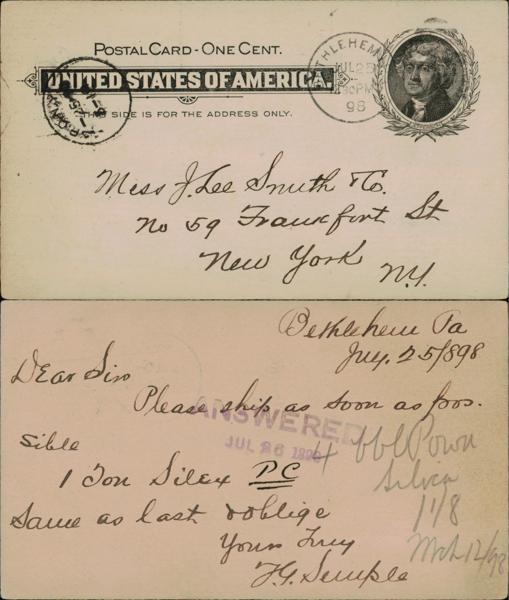 POSTAL CARD - ONE CENT.
UNITED STATES OF AMERICA.
THIS SIDE IS FOR THE ADDRESS ONLY.
THLEHEM
JUL 25
PM
98
Mess J. Lee Smith & Co.
No 59 Frankfort St
New York
N.Y.
Bethlehem Pa
July. 25/898
Dear Sirs
Please ship as soon as pos.
sible
1 Ton Silex PC
Same as last & oblige
Yours Truly
F. G. Semple
ANSWERED
JUL 26 1898
4 bbl Pown
Silica
1 1/8
Mch 12/98